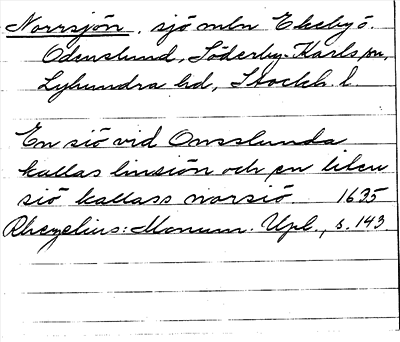 Norrsjön, sjö mln Ekeby o.
Odenslund, Söderby-Karls sn,
Lyhundra hd, Stockh. l.
En siö vid Onsslunda
kallas linsiön och en liten
siö kallass norsiö. 1635
Rhezelius: Monum. Upl., s. 143